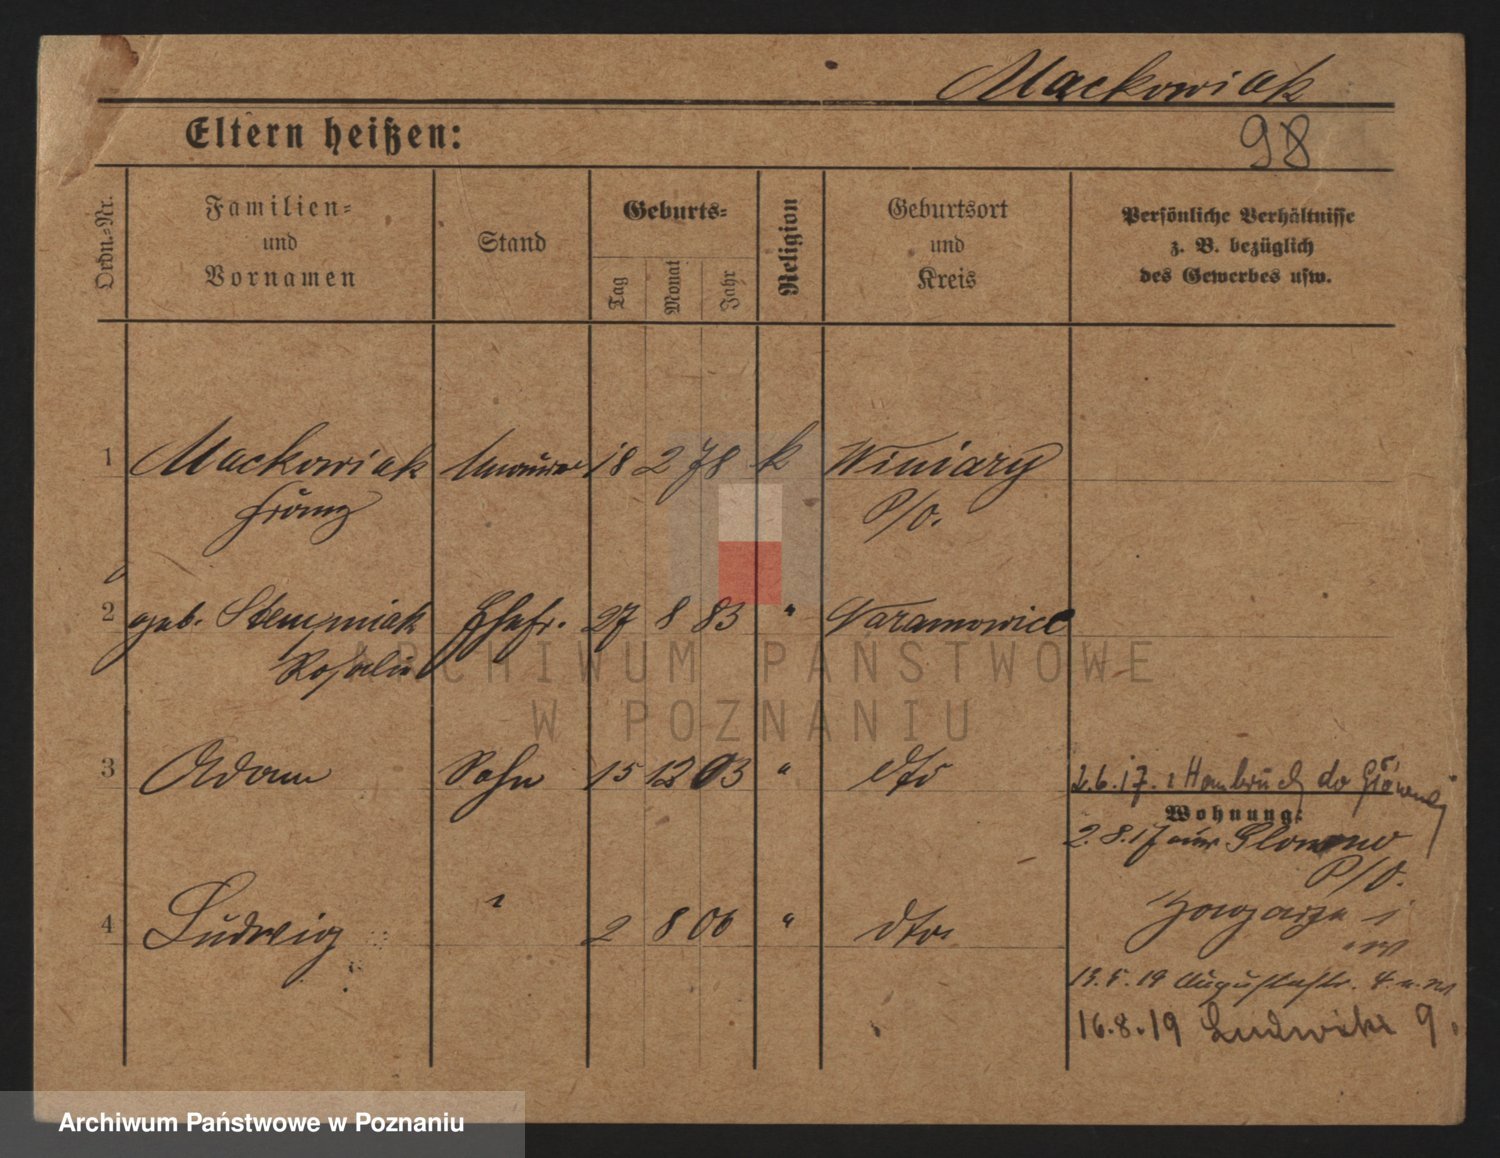 Mackowiak
98
Eltern heißen:
Ordn.-Nr.
Familien-
und
Vornamen
Stand
Geburts-
Tag
Monat
Jahr
Religion
Geburtsort
und
Kreis
Persönliche Verhältnisse
z. B. bezüglich
des Gewerbes usw.
1 Mackowiak Maurer 18 2 78 k Winiary
Franz P/O.
2 geb. Stempniak Ehefr. 27 8 83 " Naramowice
Rosalie
3 Adam Sohn 15 12 03 " dto
2.6.17. z Hombruch do Główny
Wohnung:
2.8.17 aus Glowno
P/O.
4 Ludwig " 2 8 06 " dto
13.5.19 Augustastr. 4.
16.8.19 Ludwiki 9.
ARCHIWUM PAŃSTWOWE
W POZNANIU
Archiwum Państwowe w Poznaniu